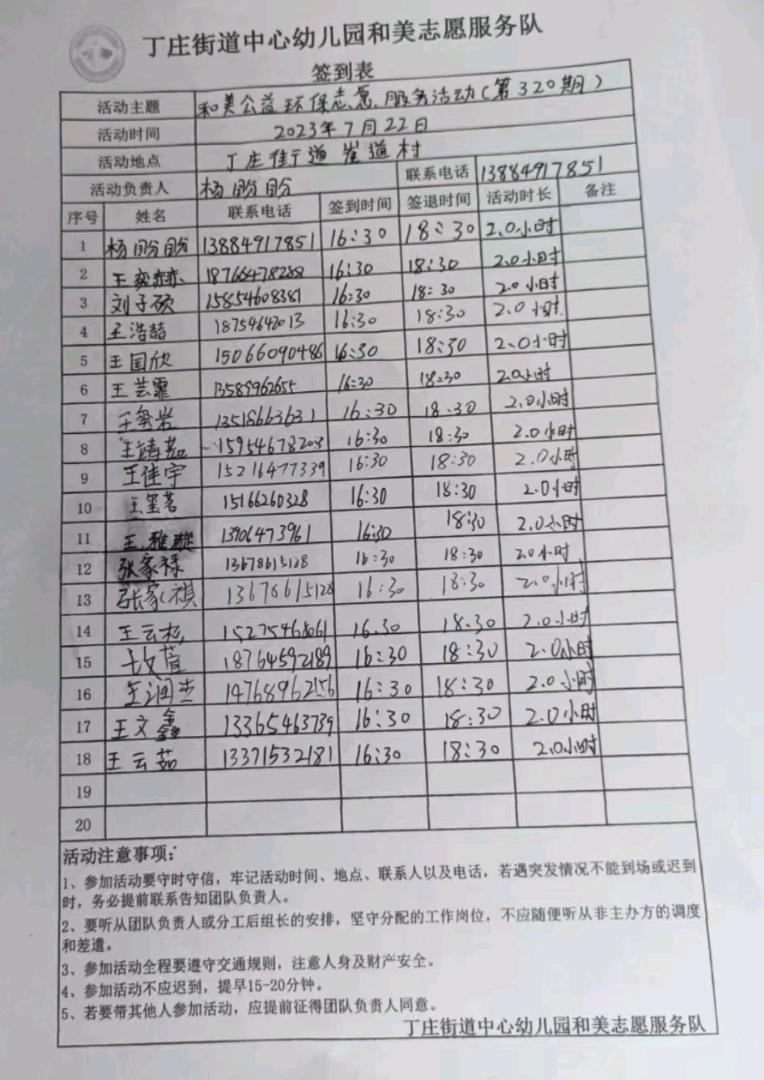 丁庄街道中心幼儿园和美志愿服务队
签到表
活动主题 和美公益环保志愿服务活动(第320期)
活动时间 2023年7月22日
活动地点 丁庄街道崔道村
活动负责人 杨盼盼 联系电话 13884917851
序号 姓名 联系电话 签到时间 签退时间 活动时长 备注
1 杨盼盼 13884917851 16:30 18:30 2.0小时
2 王奕赫 18766478288 16:30 18:30 2.0小时
3 刘子硕 15854608381 16:30 18:30 2.0小时
4 王浩喆 18754642013 16:30 18:30 2.0小时
5 王国欣 15066090486 16:30 18:30 2.0小时
6 王芸霏 13589962655 16:30 18:30 2.0小时
7 13518663631 16:30 18:30 2.0小时
8 王靖茹 15954678208 16:30 18:30 2.0小时
9 王佳宇 15216477339 16:30 18:30 2.0小时
10 15166260328 16:30 18:30 2.0小时
11 王雅璇 13906473961 16:30 18:30 2.0小时
12 张家禄 13678615128 16:30 18:30 2.0小时
13 张家祺 13678615128 16:30 18:30 2.0小时
14 王云杉 15275468061 16:30 18:30 2.0小时
15 18764592189 16:30 18:30 2.0小时
16 14768962156 16:30 18:30 2.0小时
17 王文鑫 13365463739 16:30 18:30 2.0小时
18 王云茹 13371532181 16:30 18:30 2.0小时
19
20
活动注意事项:
1、参加活动要守时守信，牢记活动时间、地点、联系人以及电话，若遇突发情况不能到场或迟到
时，务必提前联系告知团队负责人。
2、要听从团队负责人或分工后组长的安排，坚守分配的工作岗位，不应随便听从非主办方的调度
和差遣。
3、参加活动全程要遵守交通规则，注意人身及财产安全。
4、参加活动不应迟到，提早15-20分钟。
5、若要带其他人参加活动，应提前征得团队负责人同意。
丁庄街道中心幼儿园和美志愿服务队